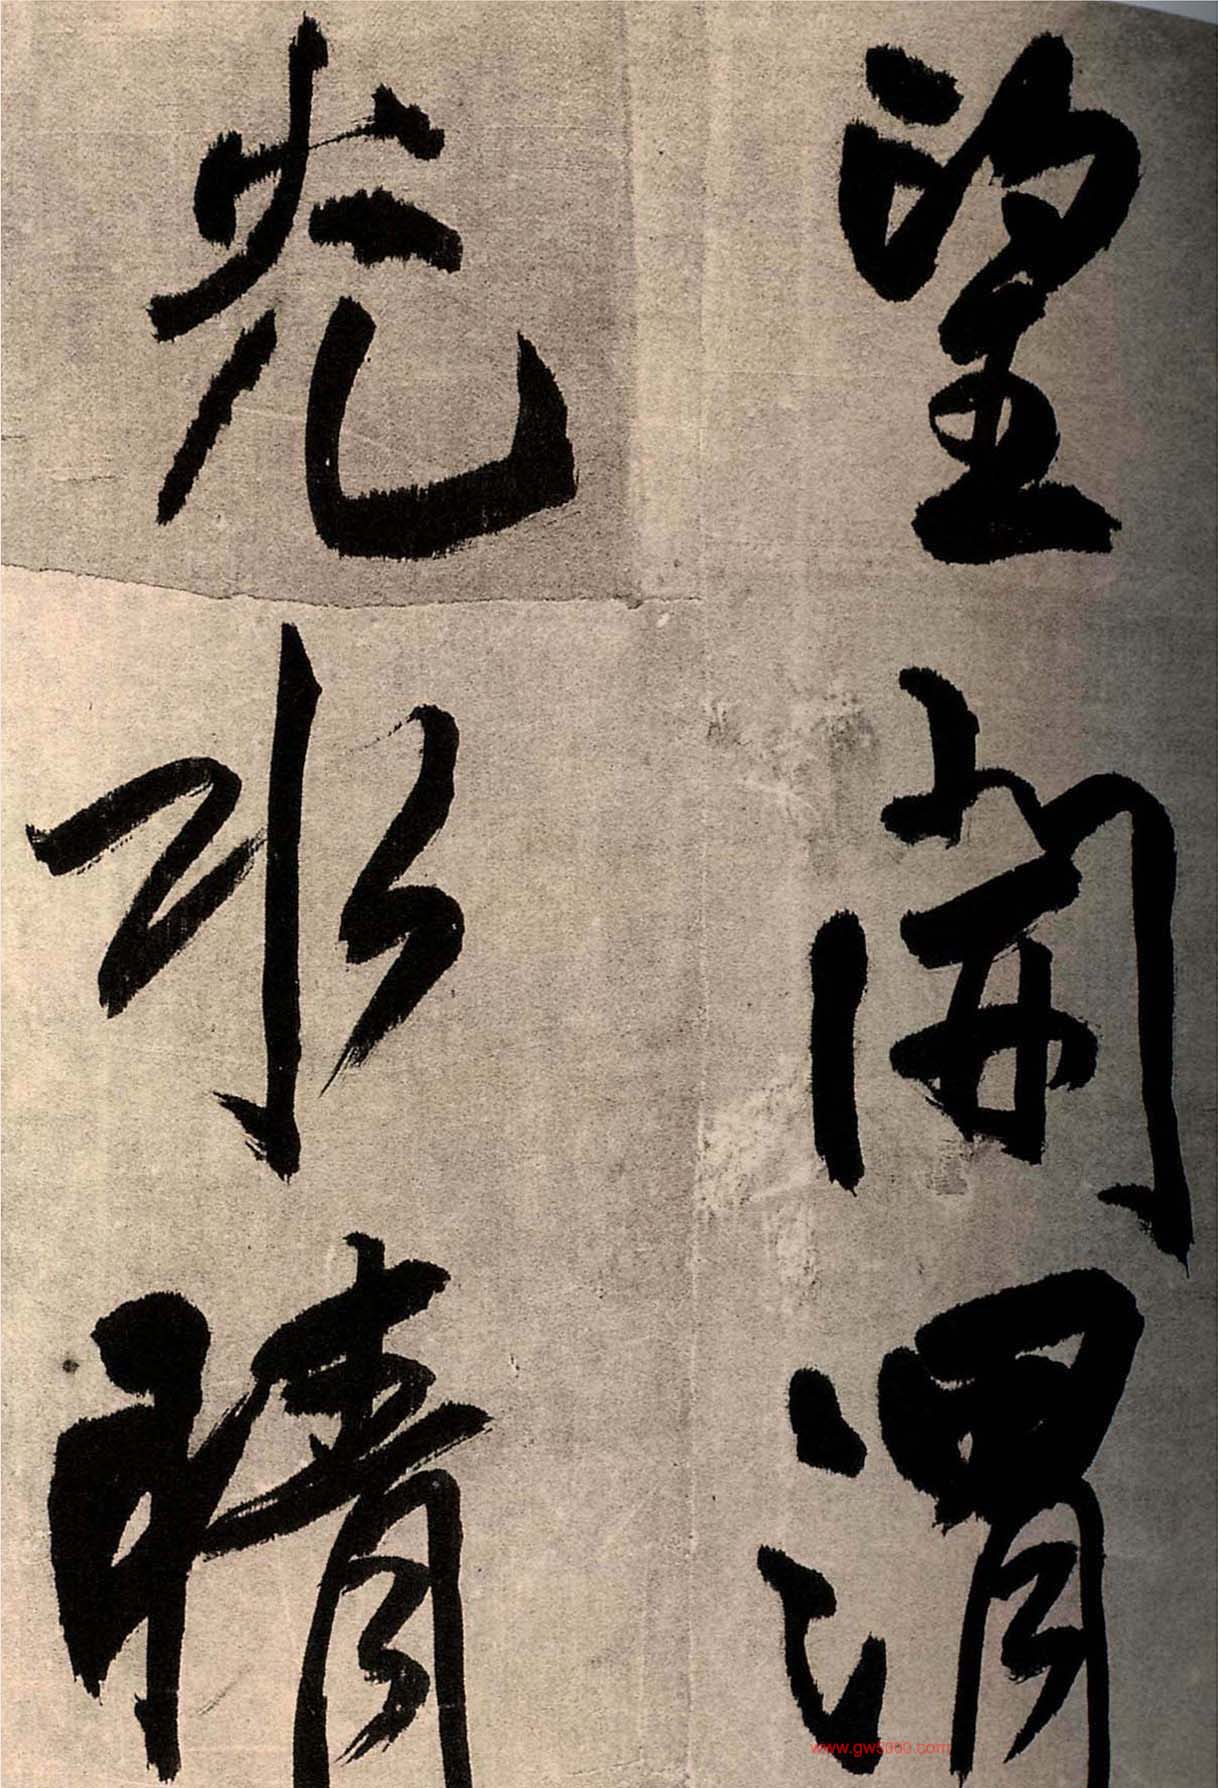 望開渭
光水晴
www.gw5000.com